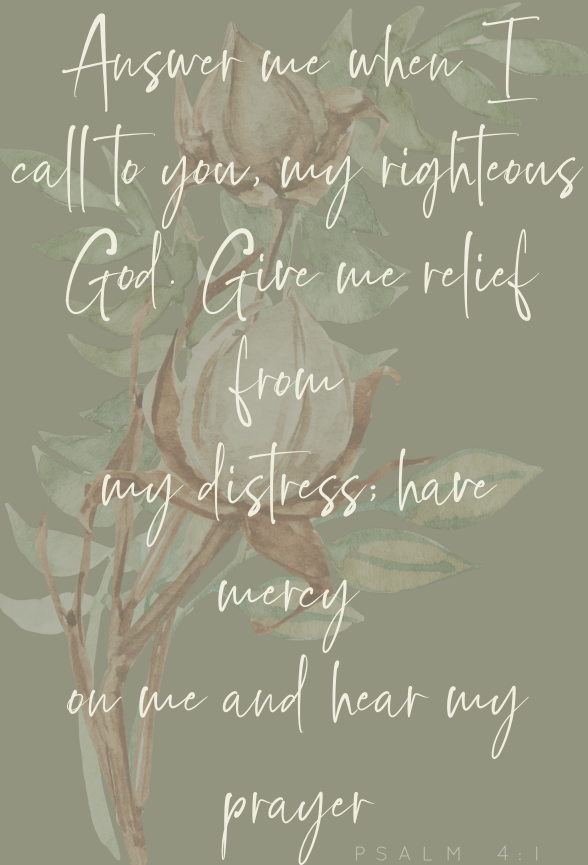 Answer me when I
call to you, my righteous
God. Give me relief
from
my distress; have
mercy
on me and hear my
prayer
PSALM 4:1